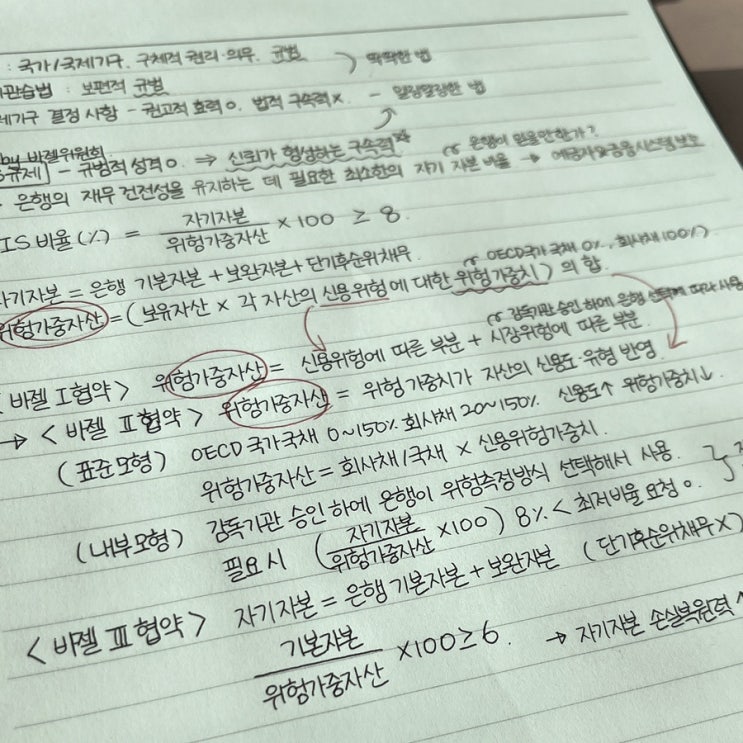 : 국가/국제기구. 구체적 권리·의무. 규범 〉 딱딱한 법
관습법 : 보편적 규범
제기구 결정 사항 - 권고적 효력 ○. 법적 구속력 ×. - 말랑말랑한 법
by 바젤위원회
규제] - 규범적 성격 ○. ⇒ 신뢰가 형성하는 구속력
은행이 믿을만한가?
은행의 재무 건전성을 유지하는 데 필요한 최소한의 자기 자본 비율 → 예금자와 금융시스템 보호
IS 비율 (%) = 자기자본 / 위험가중자산 × 100 ≥ 8.
자기자본 = 은행 기본자본 + 보완자본 + 단기후순위채무.
OECD국가 국채 0%, 회사채 100%
위험가중자산 = (보유자산 × 각 자산의 신용위험에 대한 위험가중치) 의 합
감독기관 승인 하에 은행 선택에 따라 사용
< 바젤 Ⅰ 협약 > 위험가중자산 = 신용위험에 따른 부분 + 시장위험에 따른 부분.
→ < 바젤 Ⅱ 협약 > 위험가중자산 = 위험가중치가 자산의 신용도·유형 반영.
(표준모형) OECD 국가국채 0~150% 회사채 20~150% 신용도↑ 위험가중치↓.
위험가중자산 = 회사채/국채 × 신용위험가중치.
(내부모형) 감독기관 승인 하에 은행이 위험측정방식 선택해서 사용.
필요시 (자기자본 / 위험가중자산 ×100) 8% < 최저비율 요청 ○.
< 바젤 Ⅲ 협약 > 자기자본 = 은행 기본자본 + 보완자본 (단기후순위채무 X)
기본자본 / 위험가중자산 ×100 ≥ 6. → 자기자본 손실복원력 ↑